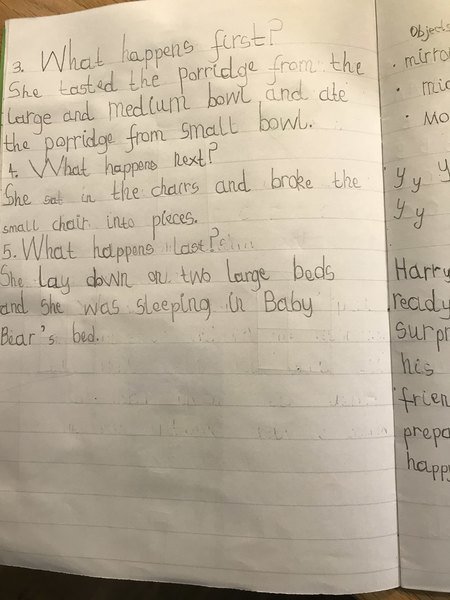 3. What happens first?
She tasted the porridge from the
large and medium bowl and ate
the porridge from small bowl.
4. What happens next?
She sat in the chairs and broke the
small chair into pieces.
5. What happens last?
She lay down on two large beds
and she was sleeping in Baby
Bear's bed.
Objects
• mirro
• mic
• Mo
y y y
y y
Harry
ready
surpr
his
frien
prepa
happy